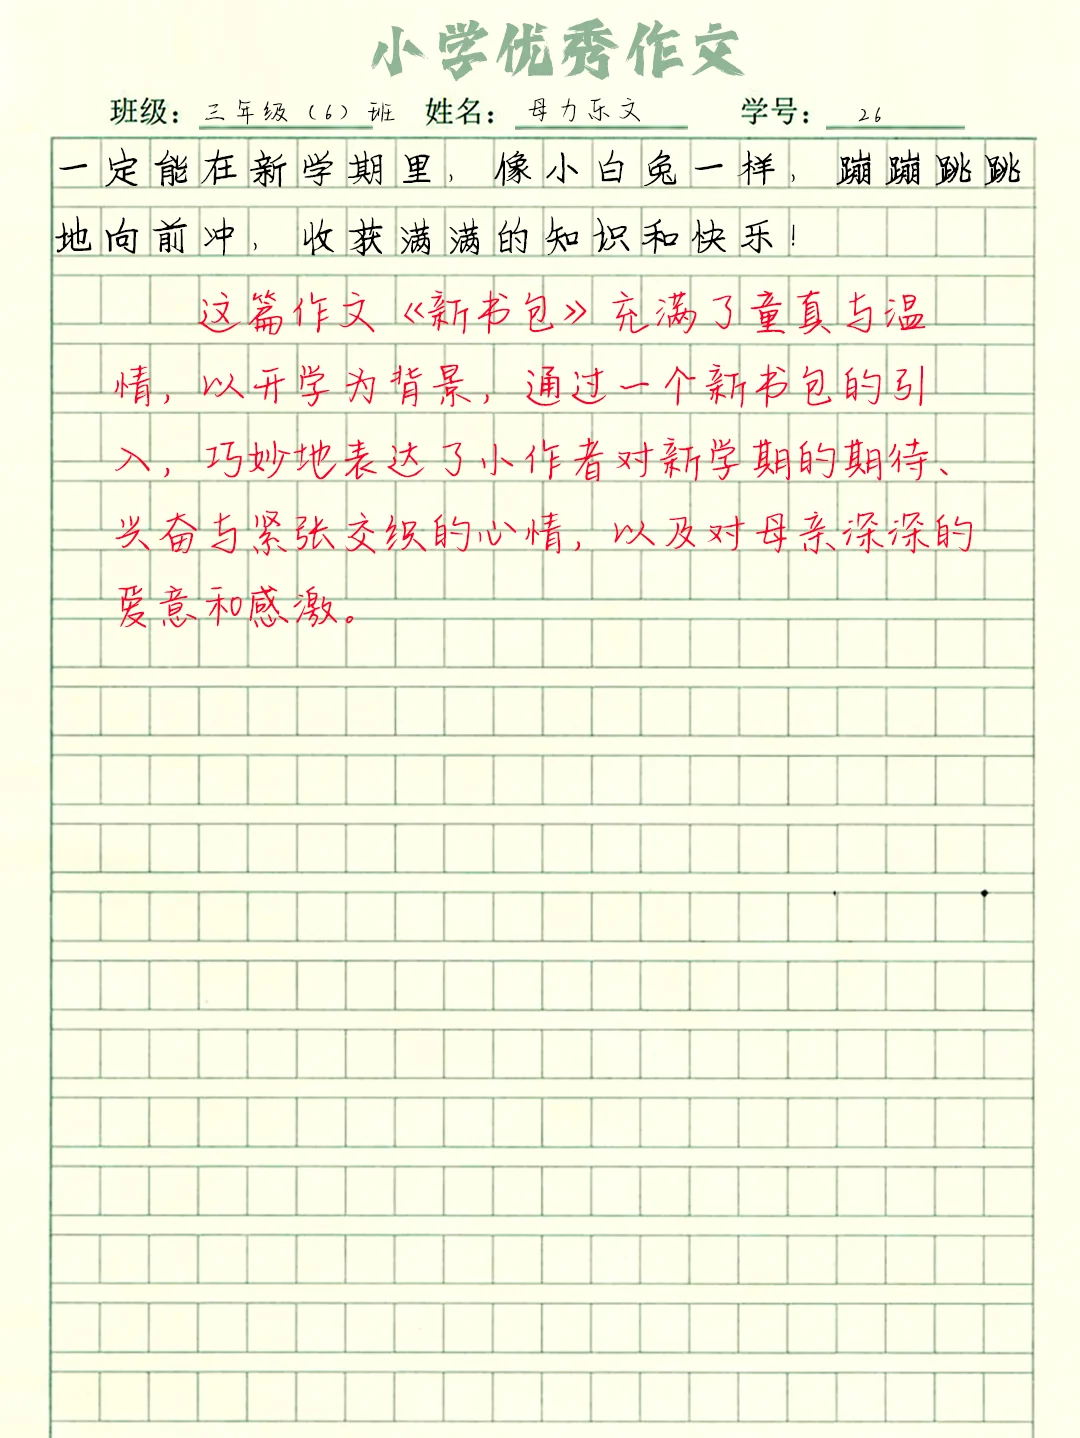 小学优秀作文
班级：三年级（6）班 姓名：母力乐文 学号：26
一定能在新学期里，像小白兔一样，蹦蹦跳跳
地向前冲，收获满满的知识和快乐！
这篇作文《新书包》充满了童真与温
情，以开学为背景，通过一个新书包的引
入，巧妙地表达了小作者对新学期的期待、
兴奋与紧张交织的心情，以及对母亲深深的
爱意和感激。